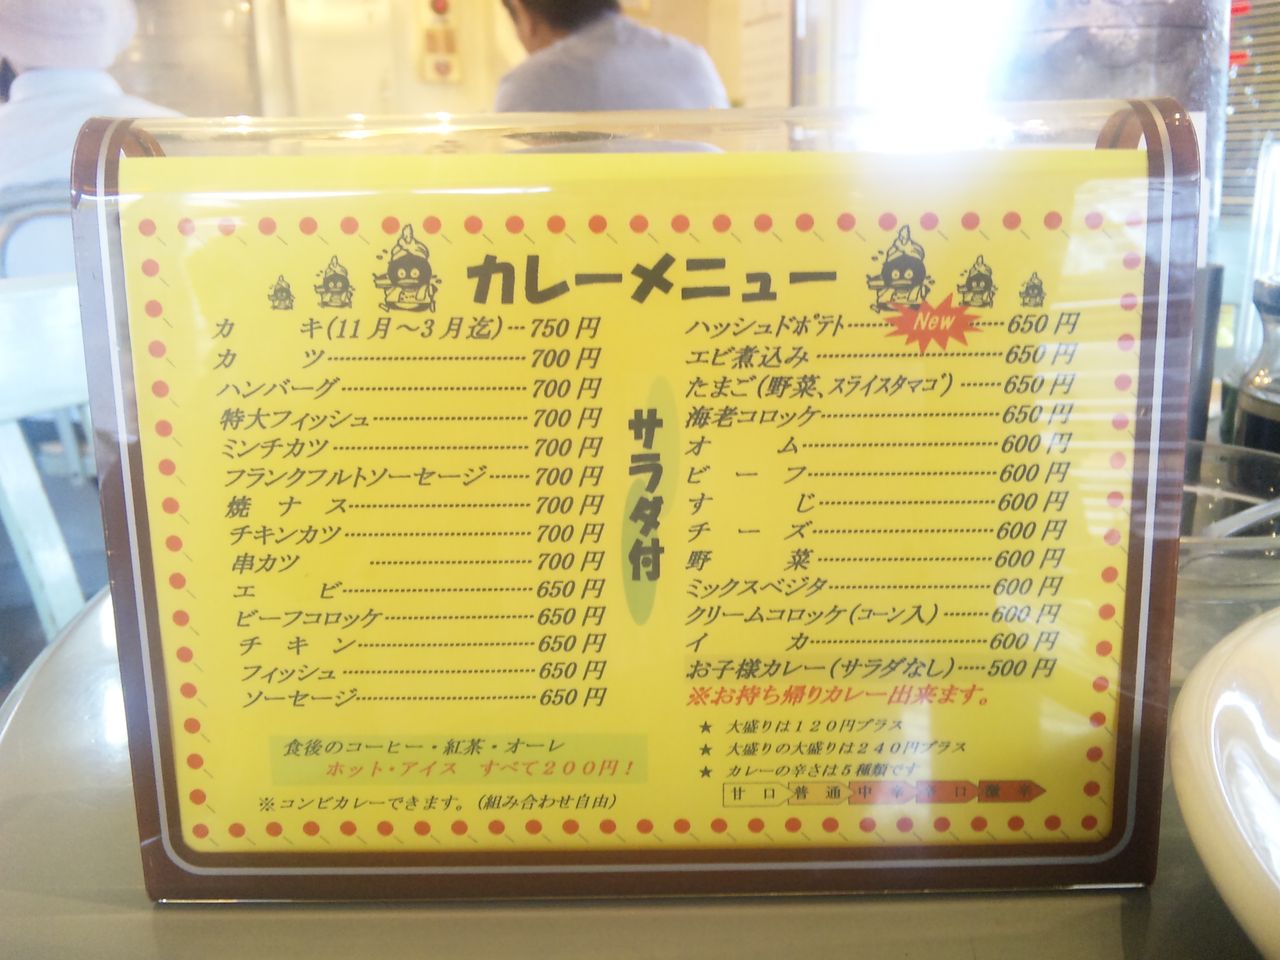 カレーメニュー
カキ(11月～3月迄)…750円
カツ……700円
ハンバーグ……700円
特大フィッシュ……700円
ミンチカツ……700円
フランクフルトソーセージ……700円
焼ナス……700円
チキンカツ……700円
串カツ……700円
エビ……650円
ビーフコロッケ……650円
チキン……650円
フィッシュ……650円
ソーセージ……650円
食後のコーヒー・紅茶・オーレ
ホット・アイス すべて200円！
※コンビカレーできます。(組み合わせ自由)
サラダ付
ハッシュドポテト……New……650円
エビ煮込み……650円
たまご(野菜、スライスタマゴ)……650円
海老コロッケ……650円
オム……600円
ビーフ……600円
すじ……600円
チーズ……600円
野菜……600円
ミックスベジタ……600円
クリームコロッケ(コーン入)……600円
イカ……600円
お子様カレー(サラダなし)……500円
※お持ち帰りカレー出来ます。
★ 大盛りは120円プラス
★ 大盛りの大盛りは240円プラス
★ カレーの辛さは5種類です
甘口 普通 中辛 辛口 激辛